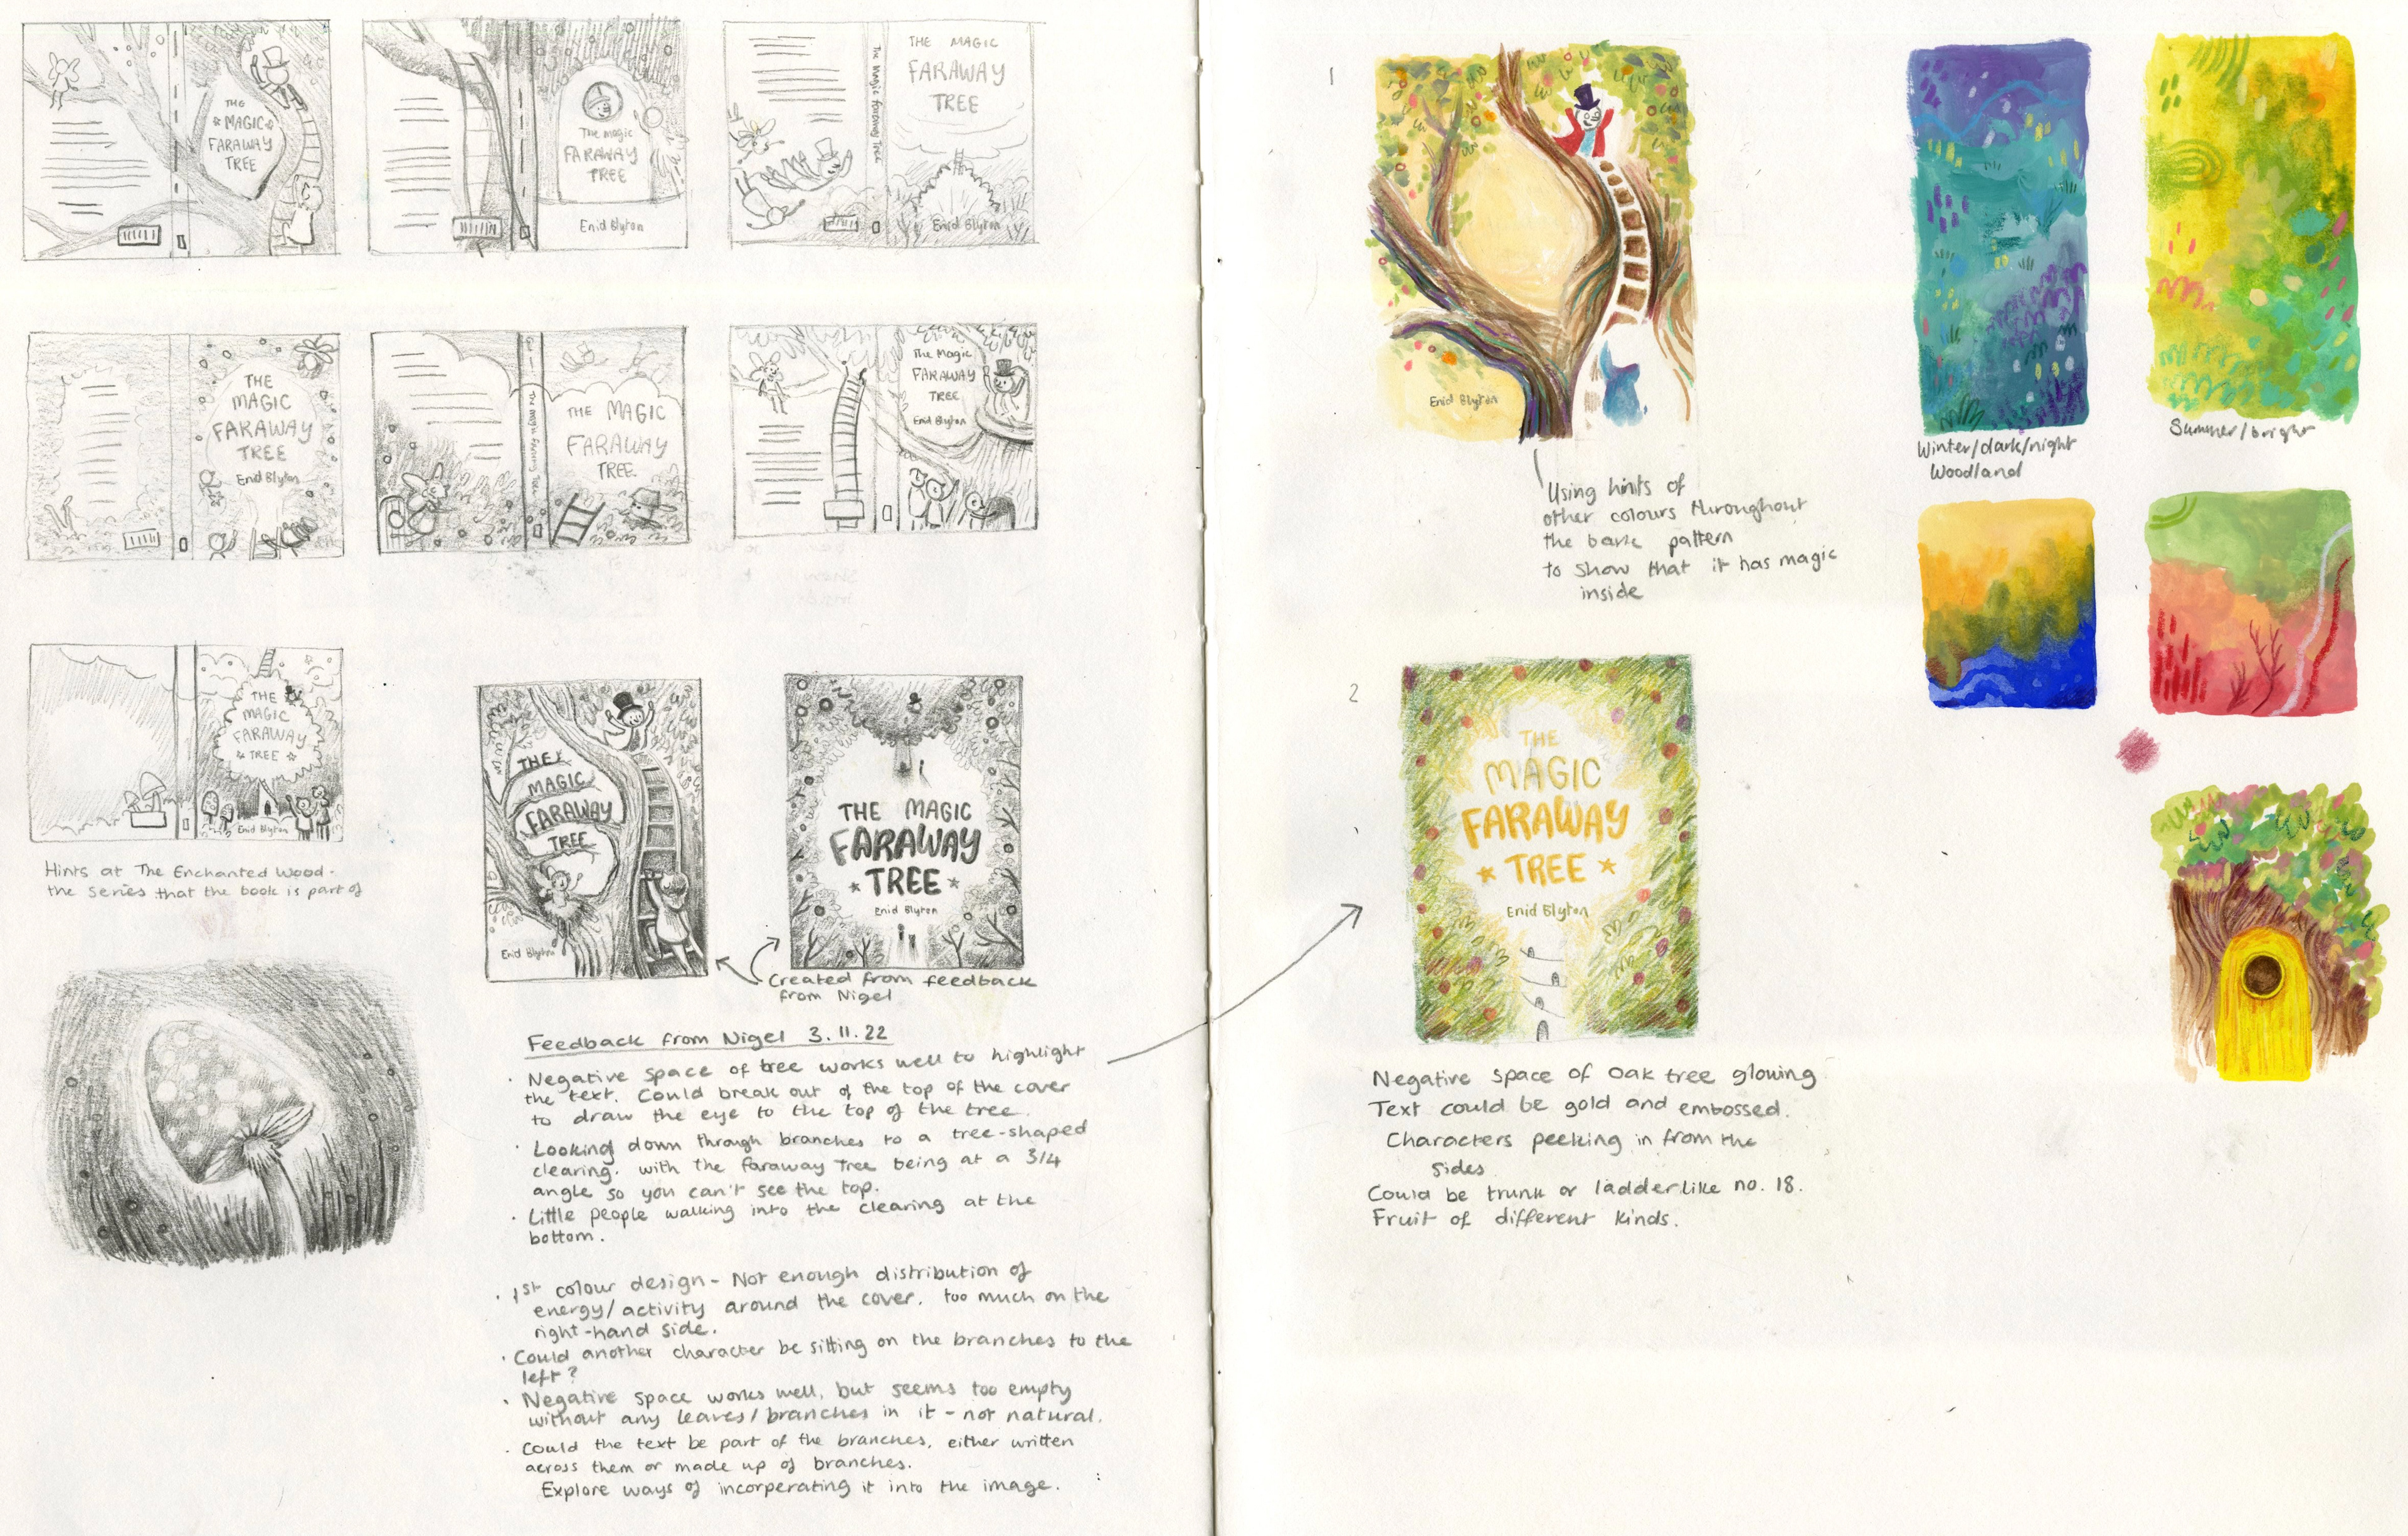 THE
MAGIC
FARAWAY
TREE
The magic
FARAWAY
TREE
Enid Blyton
The Magic Faraway Tree
THE MAGIC
FARAWAY
TREE
Enid Blyton
THE
MAGIC
FARAWAY
TREE
Enid Blyton
THE MAGIC
FARAWAY
TREE.
The Magic
FARAWAY
TREE
Enid Blyton
THE
MAGIC
FARAWAY
TREE
Enid Blyton
Hints at The Enchanted Wood -
the series that the book is part of
THE
MAGIC
FARAWAY
TREE
Enid Blyton
THE MAGIC
FARAWAY
TREE
Enid Blyton
Created from feedback
from Nigel
Feedback from Nigel 3.11.22
· Negative space of tree works well to highlight
the text. Could break out of the top of the cover
to draw the eye to the top of the tree.
· Looking down through branches to a tree-shaped
clearing. with the Faraway Tree being at a 3/4
angle so you can't see the top.
· Little people walking into the clearing at the
bottom.
· 1st colour design - Not enough distribution of
energy/activity around the cover. too much on the
right-hand side.
· Could another character be sitting on the branches to the
left?
· Negative space works well, but seems too empty
without any leaves/branches in it - not natural.
· Could the text be part of the branches, either written
across them or made up of branches.
Explore ways of incorperating it into the image.
1
Enid Blyton
Using hints of
other colours throughout
the bark pattern
to show that it has magic
inside
Winter/dark/night
Woodland
Summer/bright
2
THE
MAGIC
FARAWAY
TREE
Enid Blyton
Negative space of oak tree glowing
Text could be gold and embossed.
Characters peeking in from the
sides
Could be trunk or ladder like no. 18.
Fruit of different kinds.